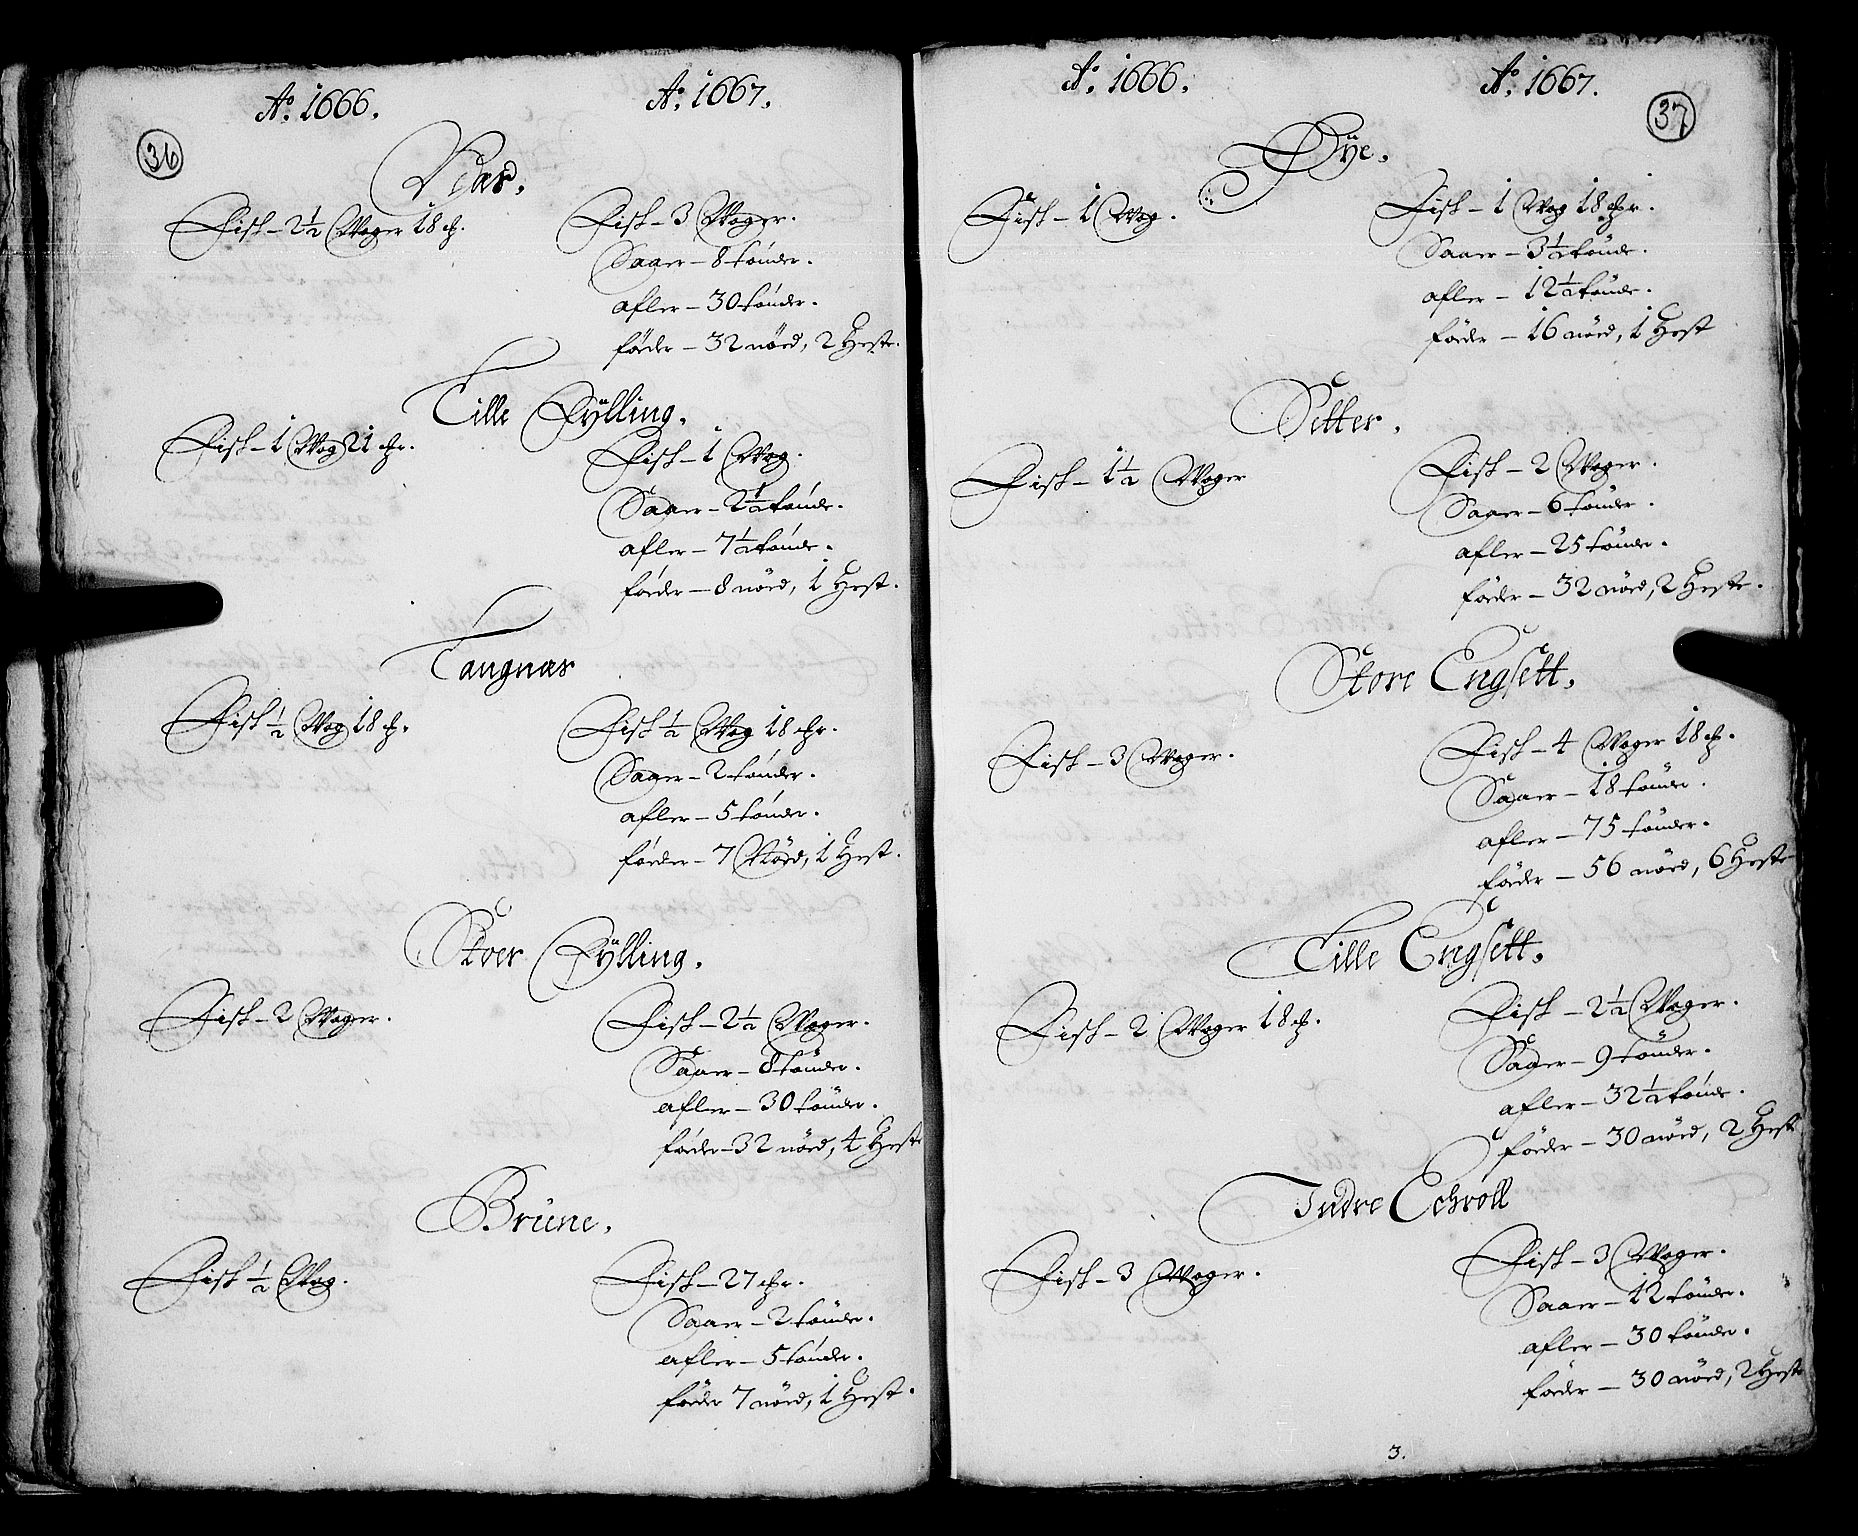 Ao. 1666. Ao. 1667.
36
Viar.
Fisk - 2½ Woger 18 ȹ. Fisk - 3 Woger.
Saaer - 8 tönder.
afler - 30 tönder.
föder - 32 nöed, 2 Heste.
Lille Fÿlling.
Fisk - 1 Wog 21 ȹr. Fisk - 1 Wog.
Saaer - 2½ tönde.
afler - 7½ tönde.
föder - 8 nöed, 1 Hest.
Tangnæs
Fisk ½ Wog 18 ȹ. Fisk ½ Wog 18 ȹr.
Saaer - 2 tönder.
afler - 5 tönder.
föeder - 7 Nöed, 1 Hest.
Stoer Fÿlling.
Fisk - 2 Woger. Fisk - 2½ Woger.
Saaer - 8 tönder.
afler - 30 tönder.
föder - 32 nöed, 4 Heste
Brüne.
Fisk ½ Wog. Fisk - 27 ȹr.
Saaer - 2 tönder.
afler - 5 tönder.
föder 7 nöed, 1 Hest.
Ao. 1666. Ao. 1667.
37
Øÿe.
Fisk - 1 Wog. Fisk - 1 Wog 18 ȹr.
Saaer - 3½ tönde.
afler - 12½ tönde.
föder - 16 nöed, 1 Hest
Setter.
Fisk - 1½ Woger Fisk - 2 Woger.
Saaer - 6 tönder.
afler - 25 tönder.
föder - 32 nöed, 2 Heste.
Store Engsett.
Fisk - 3 Woger. Fisk - 4 Woger 18 ȹ.
Saaer - 18 tönder.
afler - 75 tönder.
föder - 56 nöed, 6 Heste
Lille Engsett.
Fisk - 2 Woger 18 ȹ. Fisk - 2½ Woger.
Saaer - 9 tönder.
afler - 32½ tönde.
föder - 30 nöed, 2 Heste
Indre Echroll
Fisk - 3 Woger. Fisk - 3 Woger.
Saaer - 12 tönder.
afler - 30 tönder.
föder - 30 nöed, 2 Heste
3.